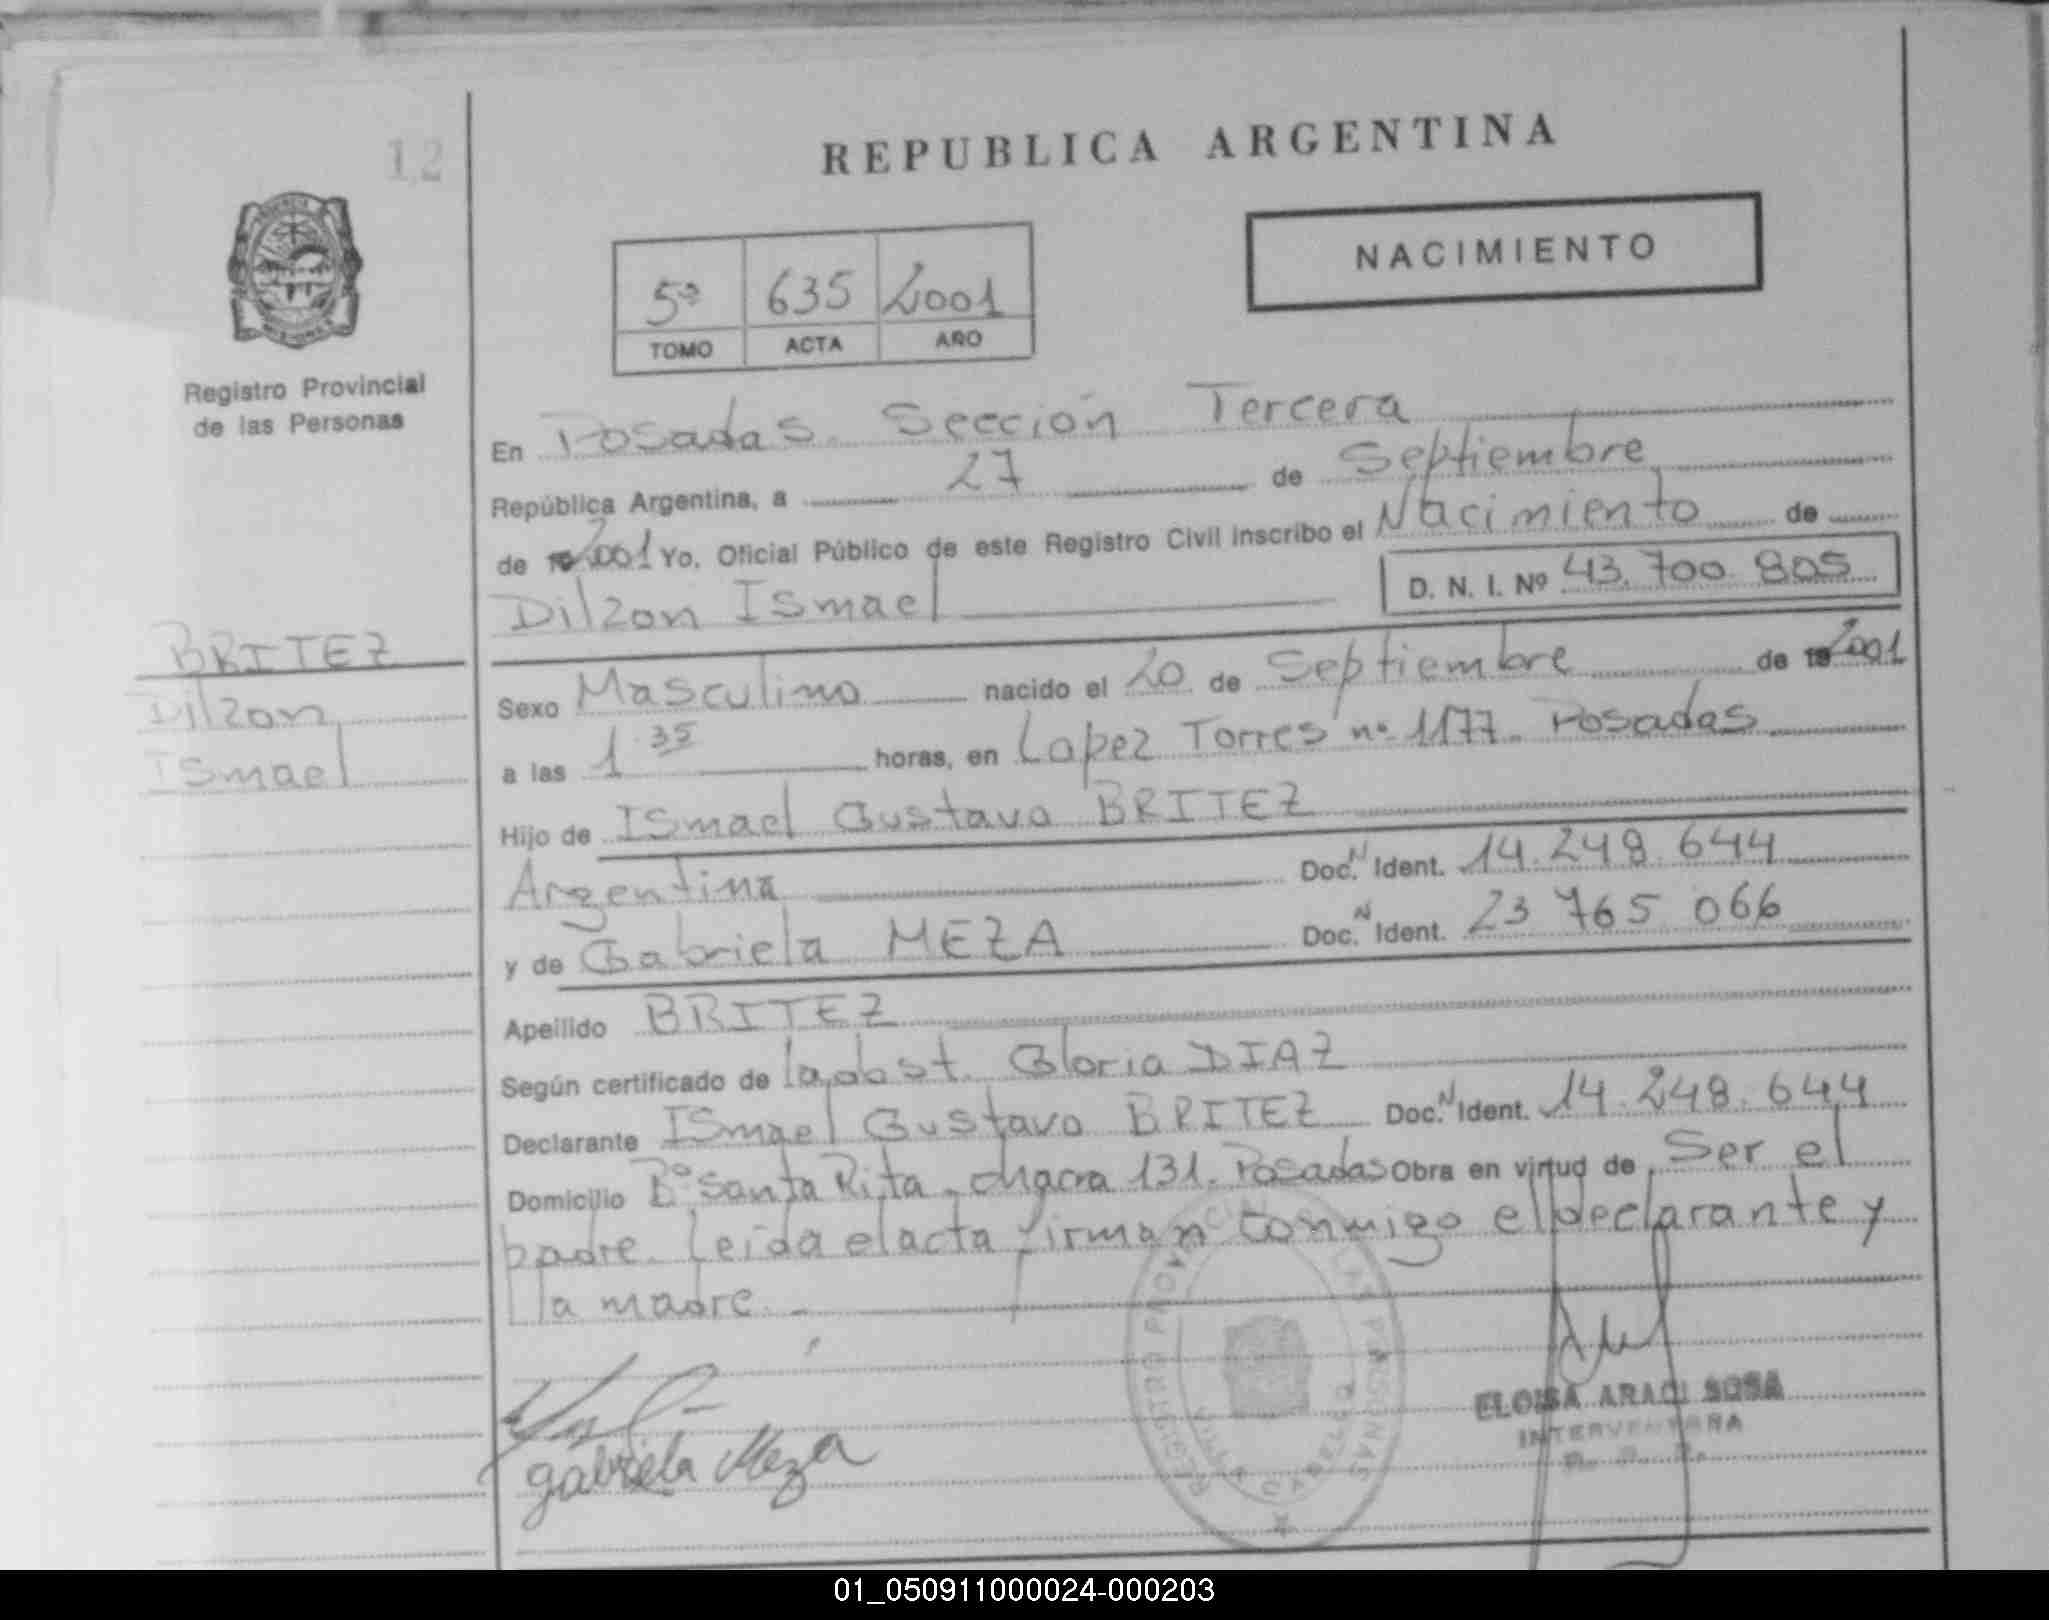 12
REPUBLICA ARGENTINA
NACIMIENTO
5º 635 2001
TOMO ACTA AÑO
Registro Provincial
de las Personas
En Posadas Sección Tercera
República Argentina, a 27 de Septiembre
de 2001 Yo, Oficial Público de este Registro Civil inscribo el Nacimiento de
D. N. I. Nº 43.700.805
Dilzon Ismael
BRITEZ
Dilzon
Ismael
Sexo Masculino nacido el 20 de Septiembre de 2001
a las 1.35 horas, en Lopez Torres nº 1177. Posadas
Hijo de Ismael Gustavo BRITEZ
Argentina Doc. N Ident. 14.248.644
y de Gabriela MEZA Doc. N Ident. 23 765 066
Apellido BRITEZ
Según certificado de la obst. Gloria DIAZ
Declarante Ismael Gustavo BRITEZ Doc. N Ident. 14.248.644
Domicilio Bº Santa Rita. chacra 131. Posadas Obra en virtud de Ser el
padre. Leida el acta firman conmigo el declarante y
la madre.-
gabriela Meza
REGISTRO PROVINCIAL DE LAS PERSONAS
VILLA CABELLO
ELOISA ARACI SOSA
INTERVENTORA
01_050911000024-000203